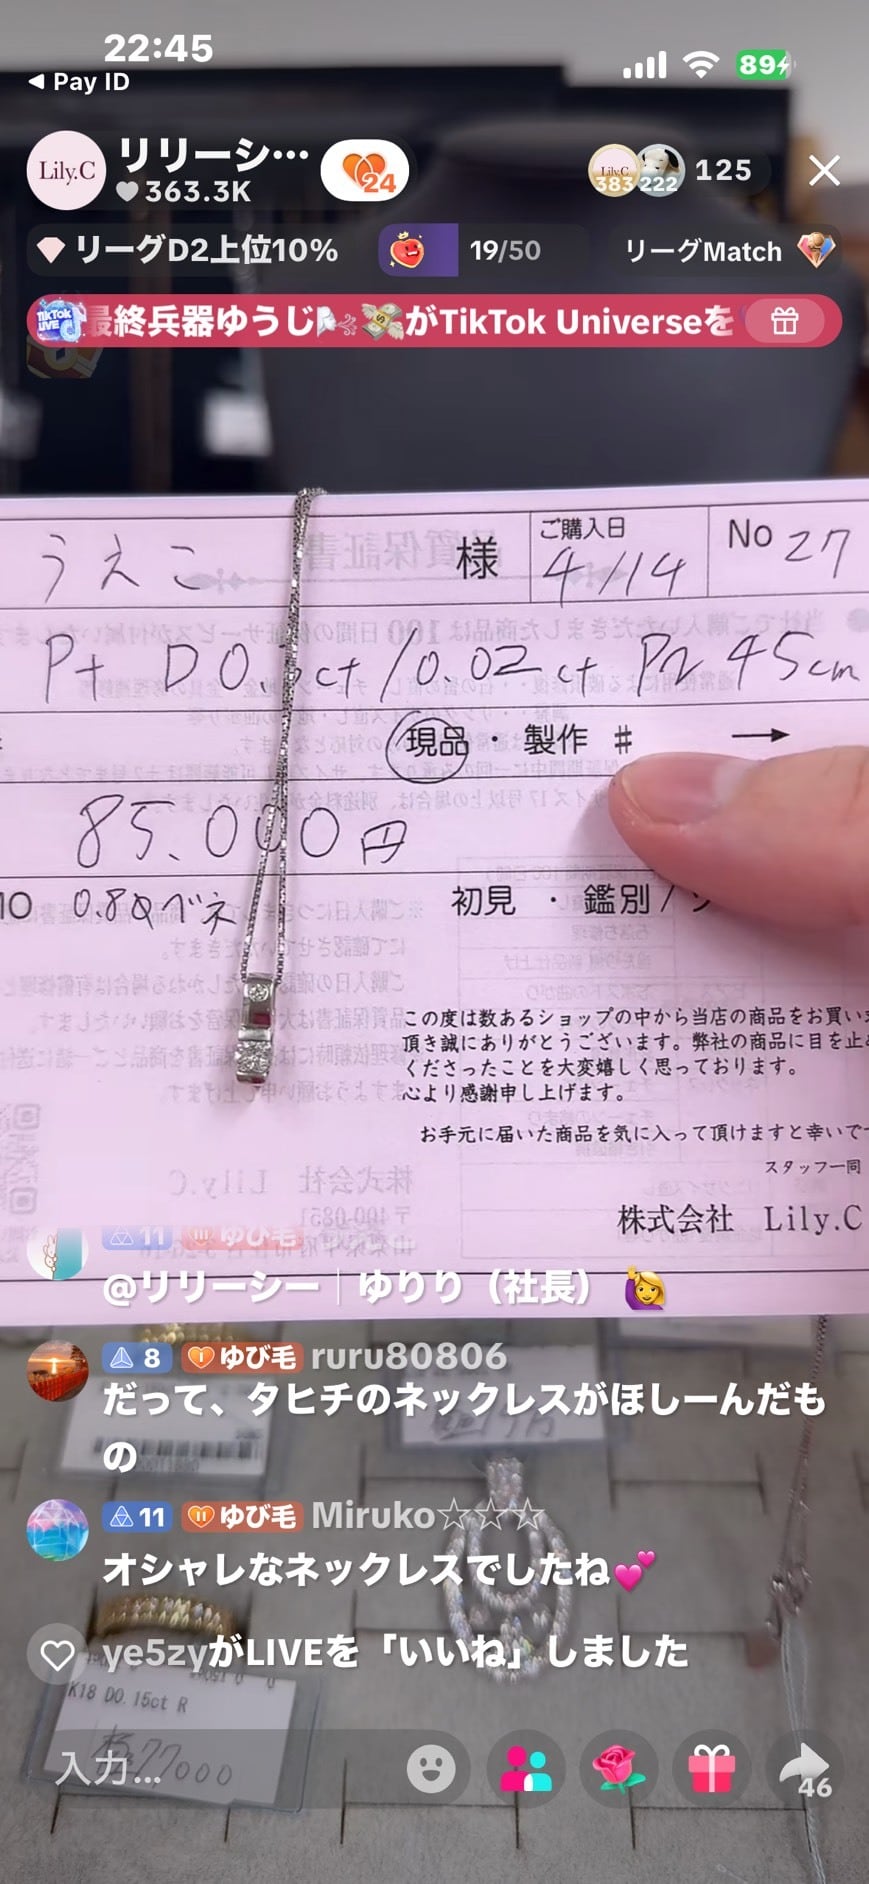 22:45
◀ Pay ID
89
Lily.C
リリーシ…
363.3K
24
383
222
125
リーグD2上位10%
19/50
リーグMatch
TikTok LIVE
最終兵器ゆうじ🌬️💸がTikTok Universeを
うえこ 様
ご購入日
4/14
No 27
ct /0.02ct 45cm
現品・製作 #
→
85.000円
10
初見 ・ 鑑別 /
この度は数あるショップの中から当店の商品をお買い
頂き誠にありがとうございます。弊社の商品に目を止
くださったことを大変嬉しく思っております。
心より感謝申し上げます。
お手元に届いた商品を気に入って頂けますと幸いで
スタッフ一同
株式会社 Lily.C
11 ゆび毛
@リリーシー｜ゆりり（社長） 🙋‍♀️
8 ゆび毛 ruru80806
だって、タヒチのネックレスがほしーんだも
の
11 ゆび毛 Miruko☆☆☆
オシャレなネックレスでしたね💕
ye5zyがLIVEを「いいね」しました
K18 D0.15ct R
77000
入力...
46